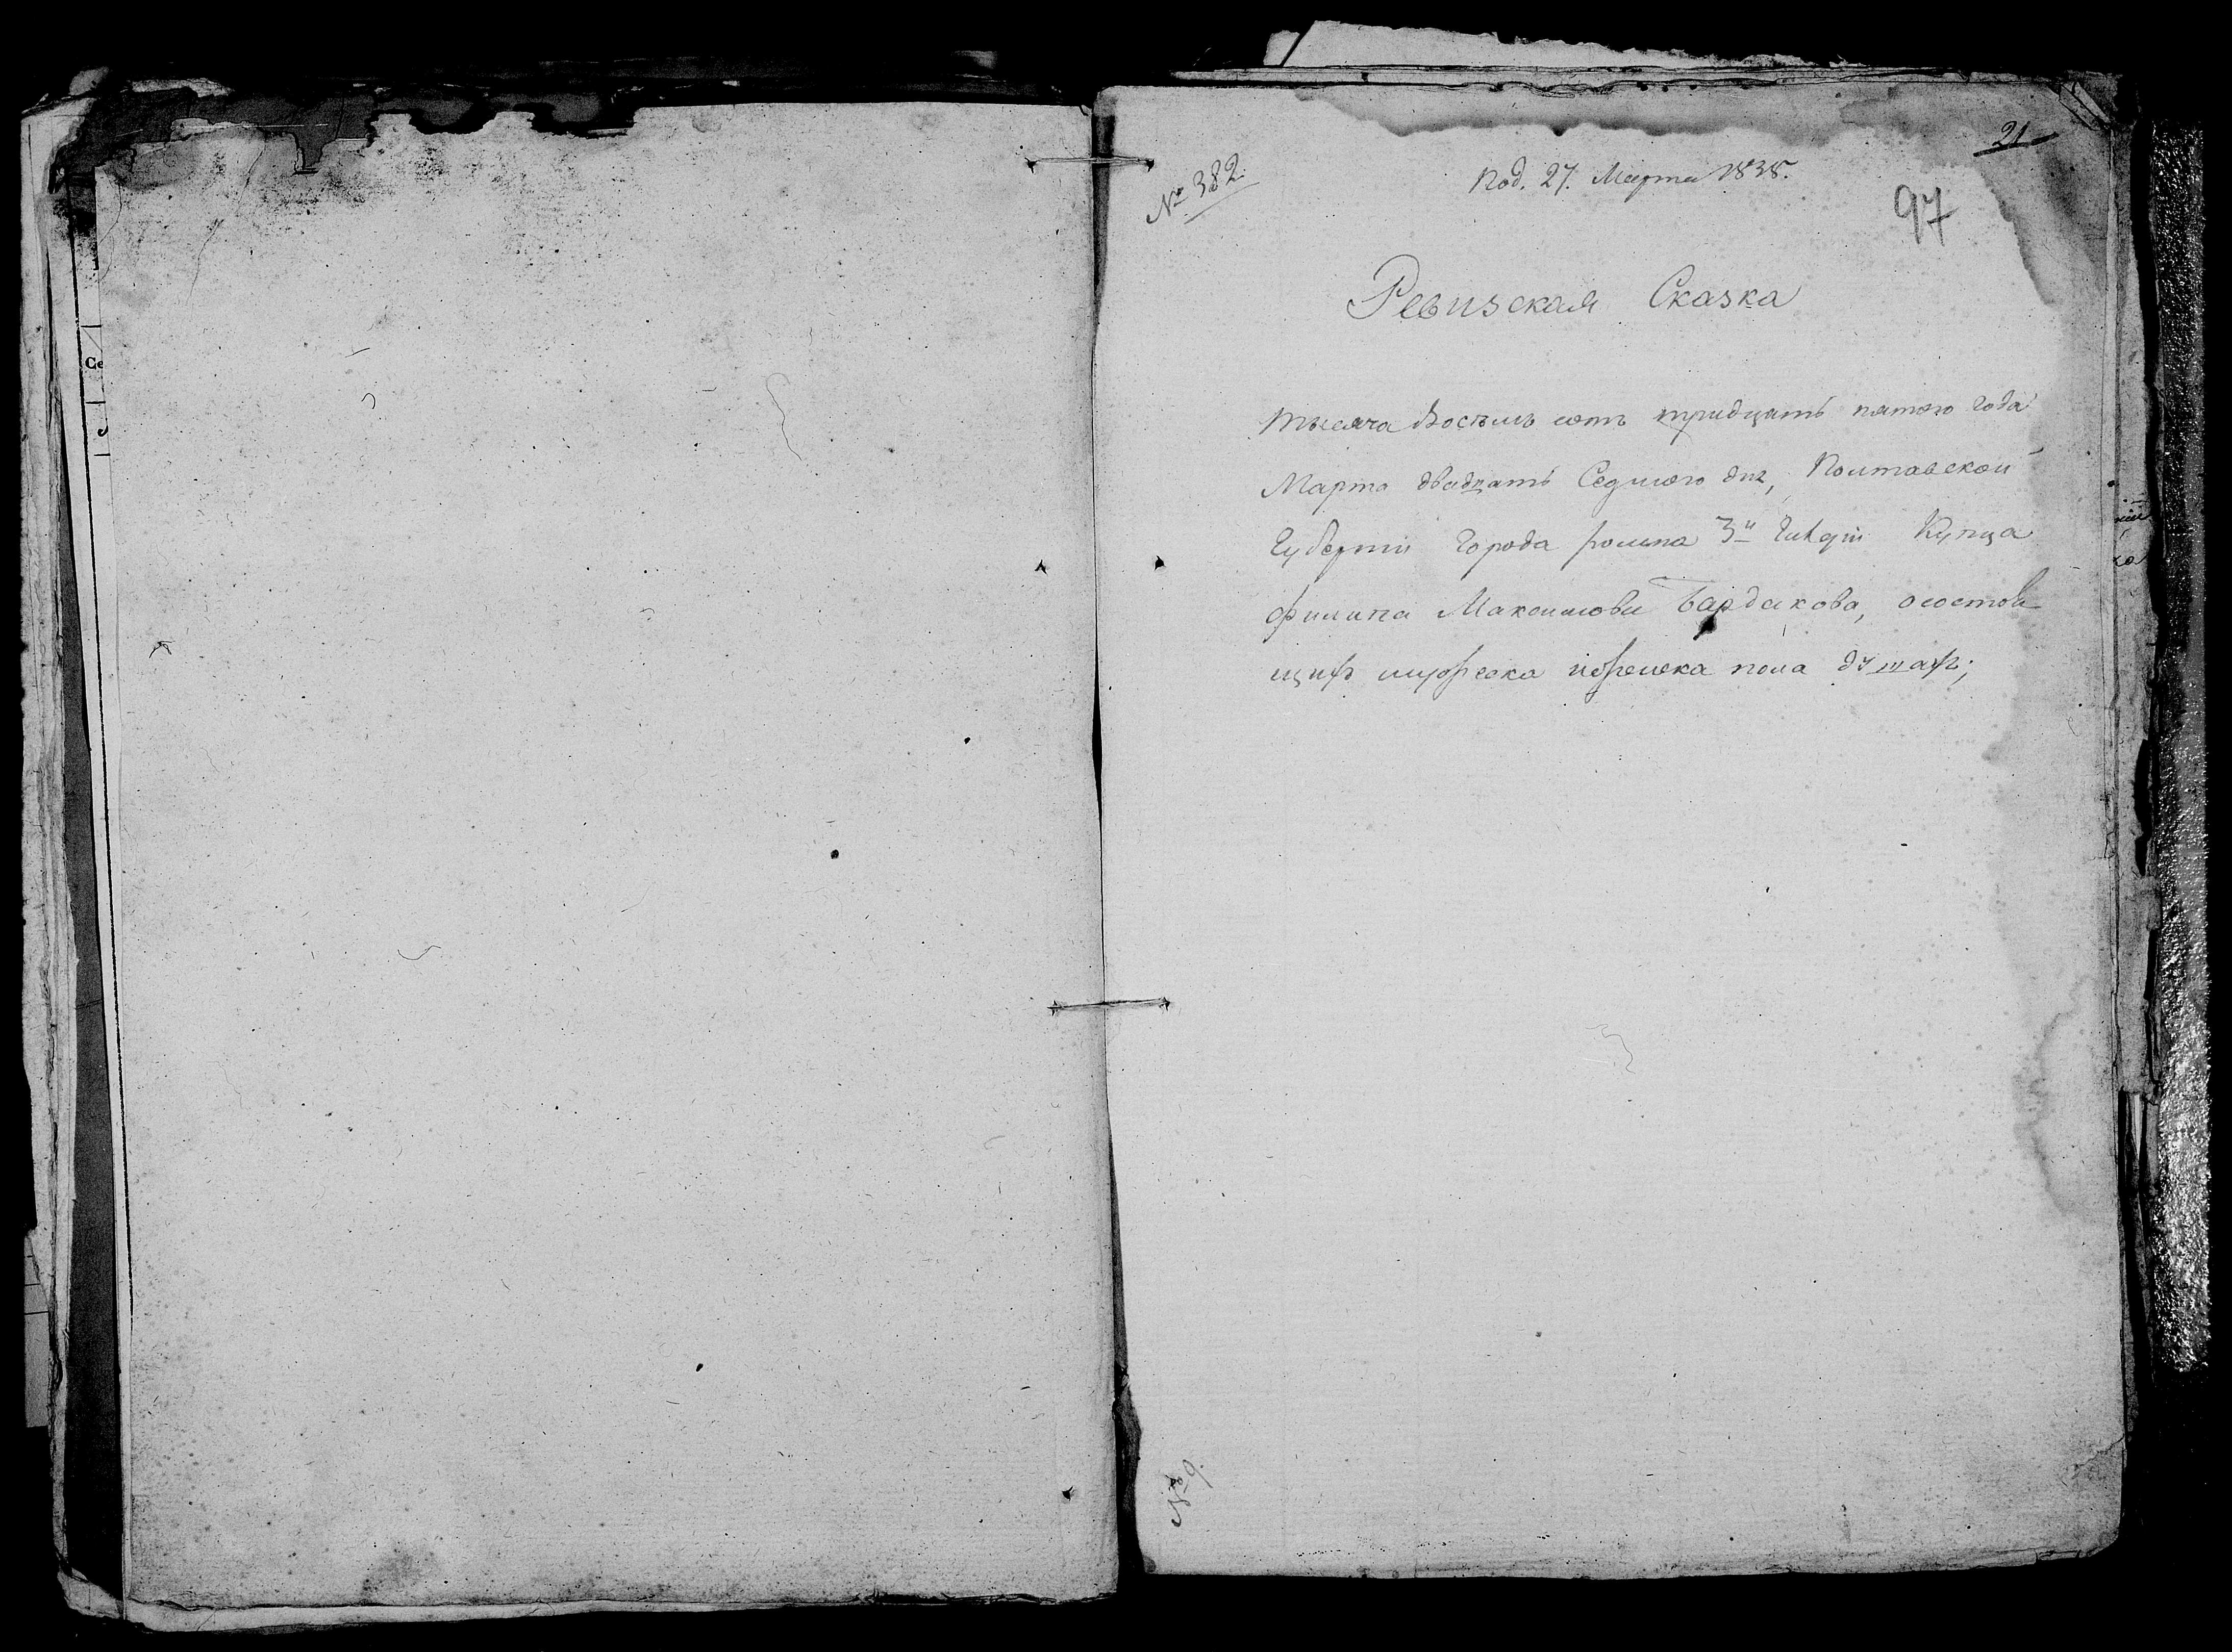 21
№ 382.
Под. 27. Марта 1835.
97
Ревизская Сказка
тысяча восемь сотъ тридцать пятого года
Марта двадцать Седмого дня, Полтавской
Губерніи Города ромна 3й Гилдіи Купца
филипа Максимова Бардакова, осостоя
щихъ мужеска иженска пола душахъ;
№ 9.